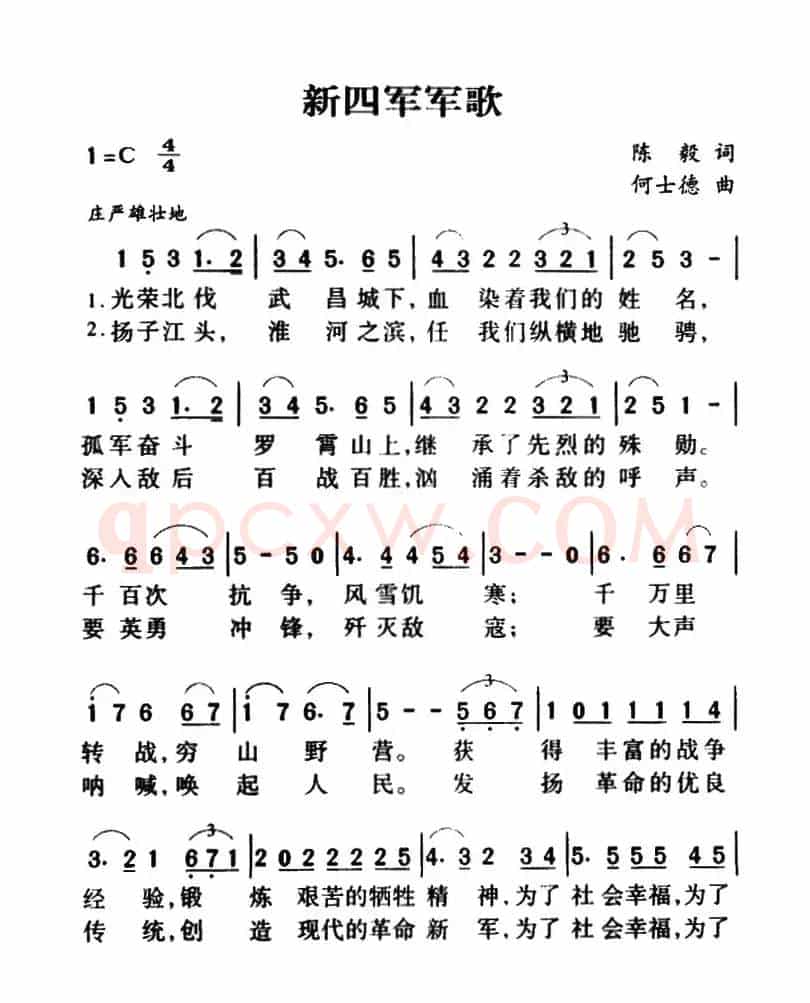 新四军军歌
1=C 4/4
陈 毅 词
何士德 曲
庄严雄壮地
3
1 5 3 1. 2 | 3 4 5. 6 5 | 4 3 2 2 3 2 1 | 2 5 3 - |
1.光荣北伐 武 昌城下,血 染着我们的 姓 名,
2.扬子江头, 淮 河之滨,任 我们纵横地 驰 骋,
3
1 5 3 1. 2 | 3 4 5. 6 5 | 4 3 2 2 3 2 1 | 2 5 1 - |
孤军奋斗 罗 霄山上,继 承了先烈的 殊 勋。
深入敌后 百 战百胜,汹 涌着杀敌的 呼 声。
qpcxw.COM
6. 6 6 4 3 | 5 - 5 0 | 4. 4 4 5 4 | 3 - - 0 | 6. 6 6 7 |
千百次 抗 争, 风雪饥 寒; 千 万里
要英勇 冲 锋, 歼灭敌 寇; 要 大声
3
1 7 6 6 7 | 1 7 6. 7 | 5 - - 5 6 7 | 1 0 1 1 1 1 1 4 |
转 战,穷 山 野 营。 获 得 丰富的战争
呐 喊,唤 起 人 民。 发 扬 革命的优良
3
3. 2 1 6 7 1 | 2 0 2 2 2 2 2 5 | 4. 3 2 3 4 | 5. 5 5 5 4 5 |
经 验,锻 炼 艰苦的牺牲 精 神,为了 社会幸福,为了
传 统,创 造 现代的革命 新 军,为了 社会幸福,为了